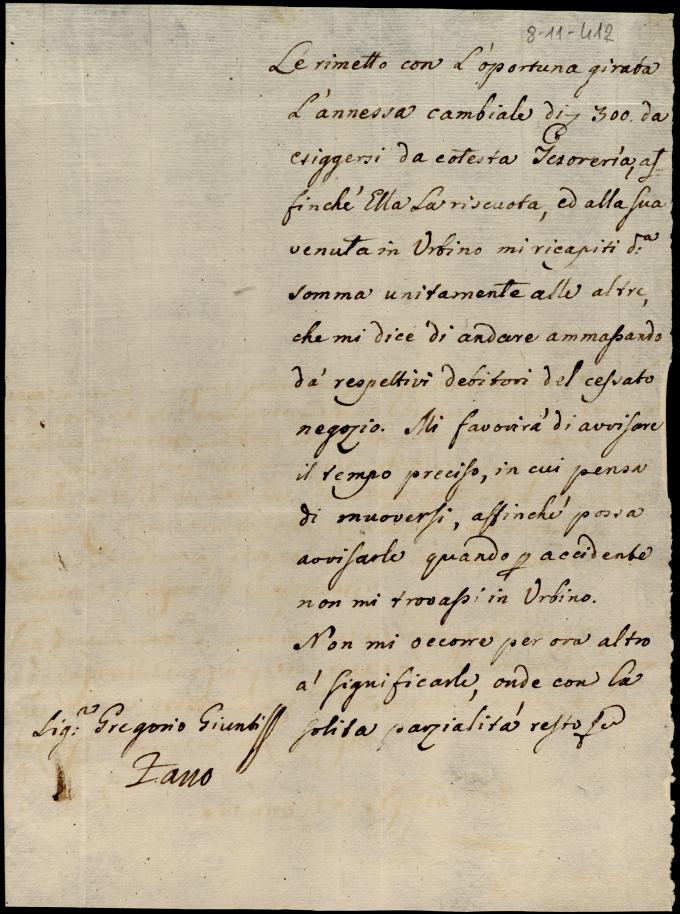 8-11-412
Le rimetto con L'oportuna girata
L'annessa cambiale di 300. da
esiggersi da cotesta Tesoreria, af-
finché Ella La riscuota, ed alla sua
venuta in Urbino mi ricapiti d.ª
somma unitamente alle altre,
che mi dice di andare ammassando
da' respettivi debitori del cessato
negozio. Mi favorirà di avvisare
il tempo preciso, in cui pensa
di muoversi, affinché possa
avvisarle quando p accidente
non mi trovassi in Urbino.
Non mi occorre per ora altro
a' significarle, onde con la
solita parzialità resto
Sig.ʳ Gregorio Giunti
Fano